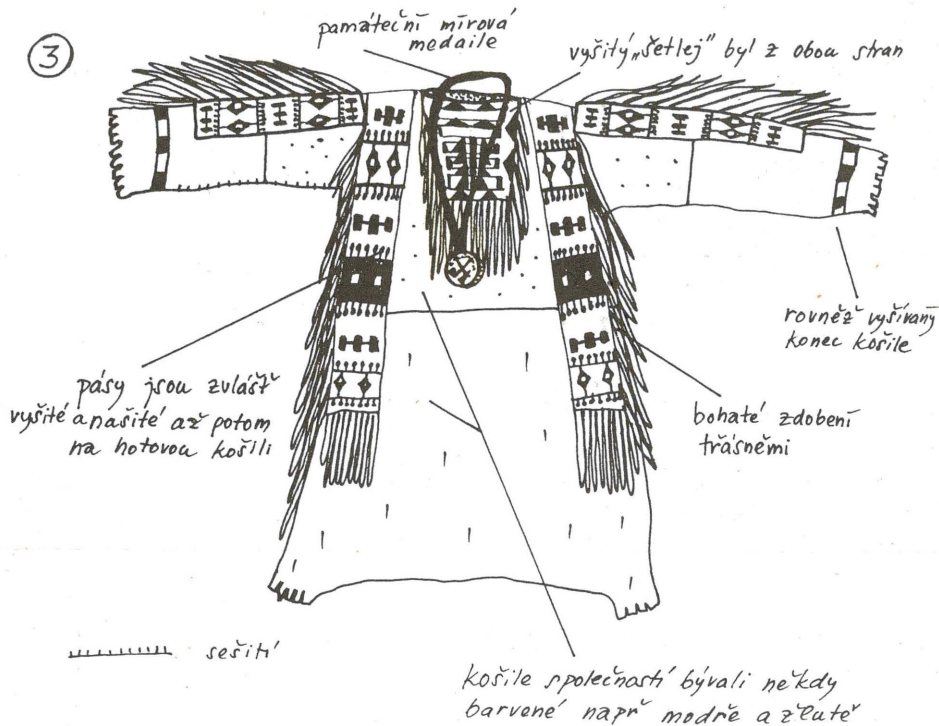 3
památeční mírová
medaile
vyšitý „šetlej" byl z obou stran
rovněž vyšívaný
konec košile
pásy jsou zvlášť
vyšité a našité až potom
na hotovou košili
bohaté zdobení
třásněmi
sešití
košile společností bývali někdy
barvené např modře a žlutě